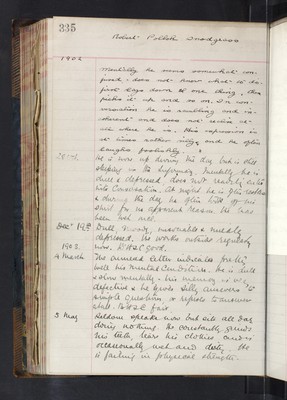 335
Robert Pollock Snodgrass
1902
mentally he seems somewhat con-
fused - does not know what to do
first lays down one thing, then
picks it up and so on. In con-
versation he is rambling and in-
coherent and does not realise
where he is. His expression is
at times rather silly and he often
laughs foolishly
He is up during the day but is still
sleeping in the Infirmary. Mentally he is
dull & depressed does not readily enter
into conversation. At night he is often restless
& during the day he often takes off his
shirt for no apparent reason. He has
been wet and
Decr 19th Dull, moody, miserable & mildly
depressed. He works outside regularly
1903. now. B.H. & S. good.
4 March The annexed letter indicates pretty
well his mental condition. He is dull
& slow mentally - his memory is very
defective & he gives silly answers to
simple questions or refuses to answer
at all. B.H. & S. fair.
3 May Seldom speaks now but sits all day
doing nothing. He constantly grinds
his teeth, tears his clothes and is
occasionally wet and dirty. He
is failing in physical strength.